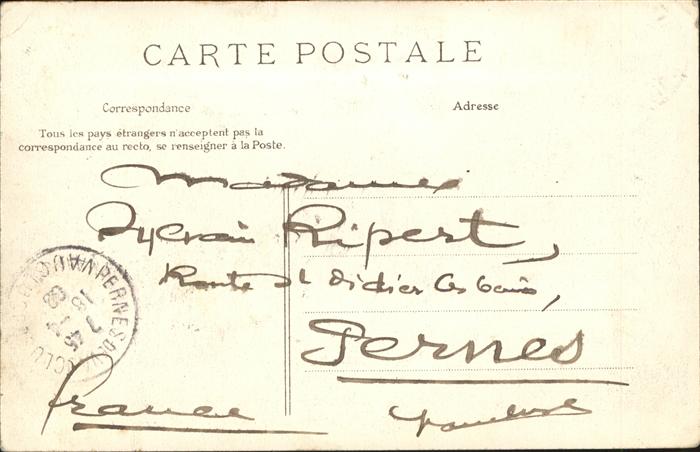 CARTE POSTALE
Correspondance
Adresse
Tous les pays étrangers n'acceptent pas la
correspondance au recto, se renseigner à la Poste.
Madame
Sylvain Ripert,
Route St Didier les bains,
Pernes
Vaucluse
France
PERNES
18
7 45